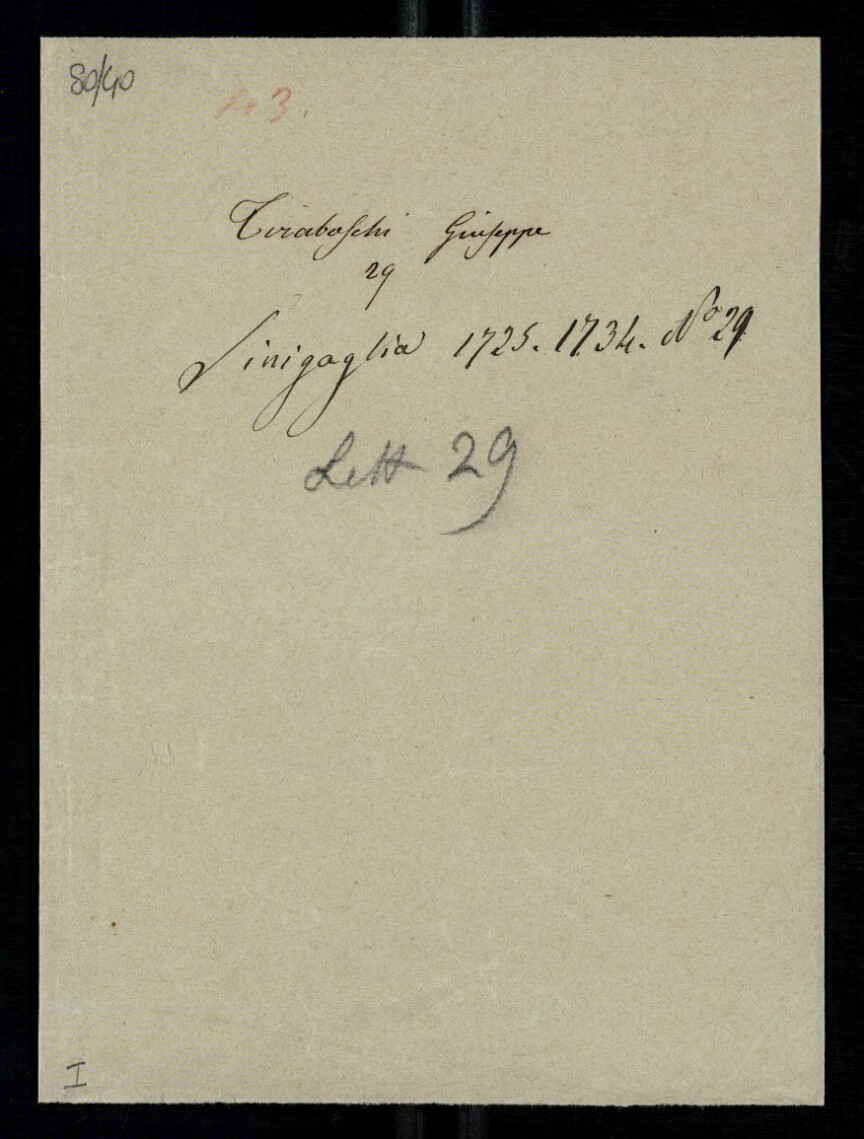 80/40
43.
Tiraboschi Giuseppe
29
Sinigaglia 1725. 1734. No 29
Lett 29
I